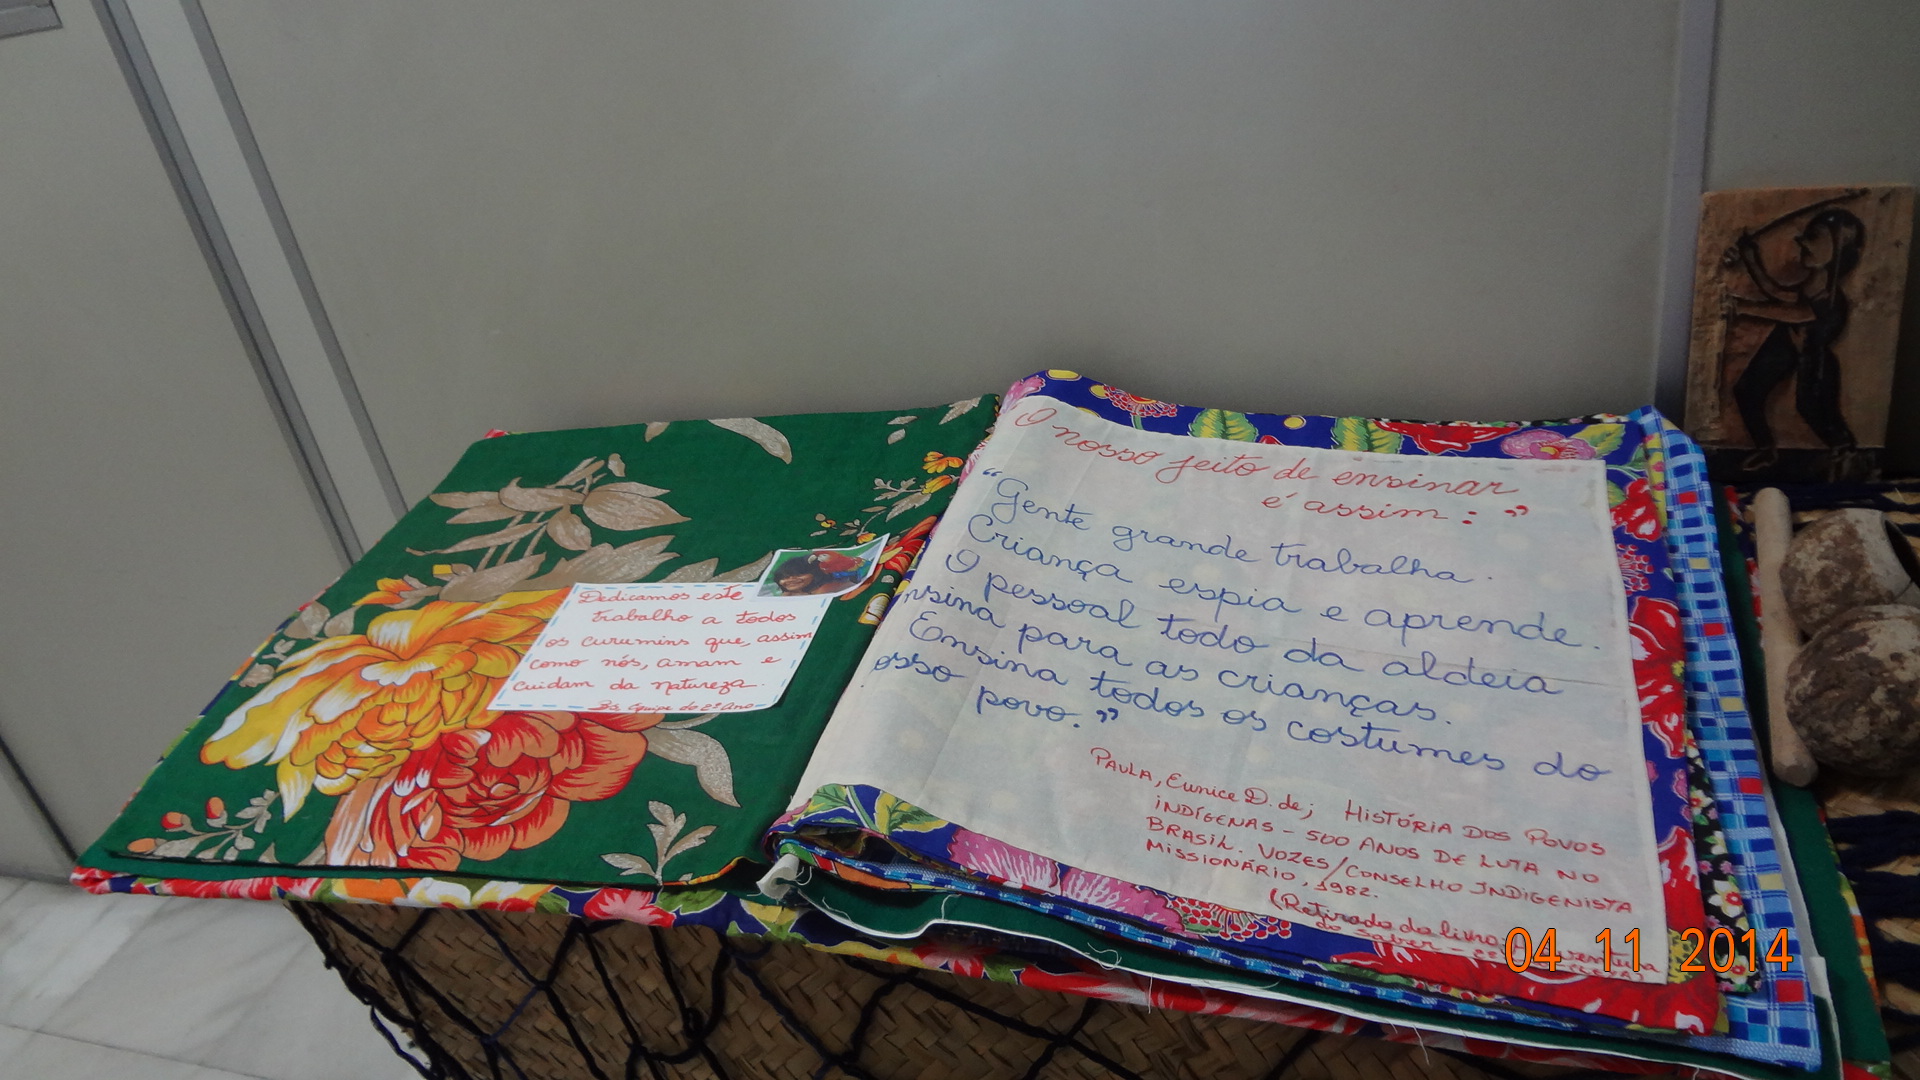 Dedicamos este
trabalho a todos
os curumins que, assim
como nós, amam e
cuidam da natureza.
equipe do 2º Ano
O nosso jeito de ensinar
é assim: ”
“Gente grande trabalha.
Criança espia e aprende.
O pessoal todo da aldeia
nsina para as crianças.
Ensina todos os costumes do
osso povo.”
PAULA, Eunice D. de; HISTÓRIA DOS POVOS
INDÍGENAS - 500 ANOS DE LUTA NO
BRASIL. VOZES/CONSELHO INDIGENISTA
MISSIONÁRIO, 1982.
(Retirado do livro
do Saber -
04 11 2014